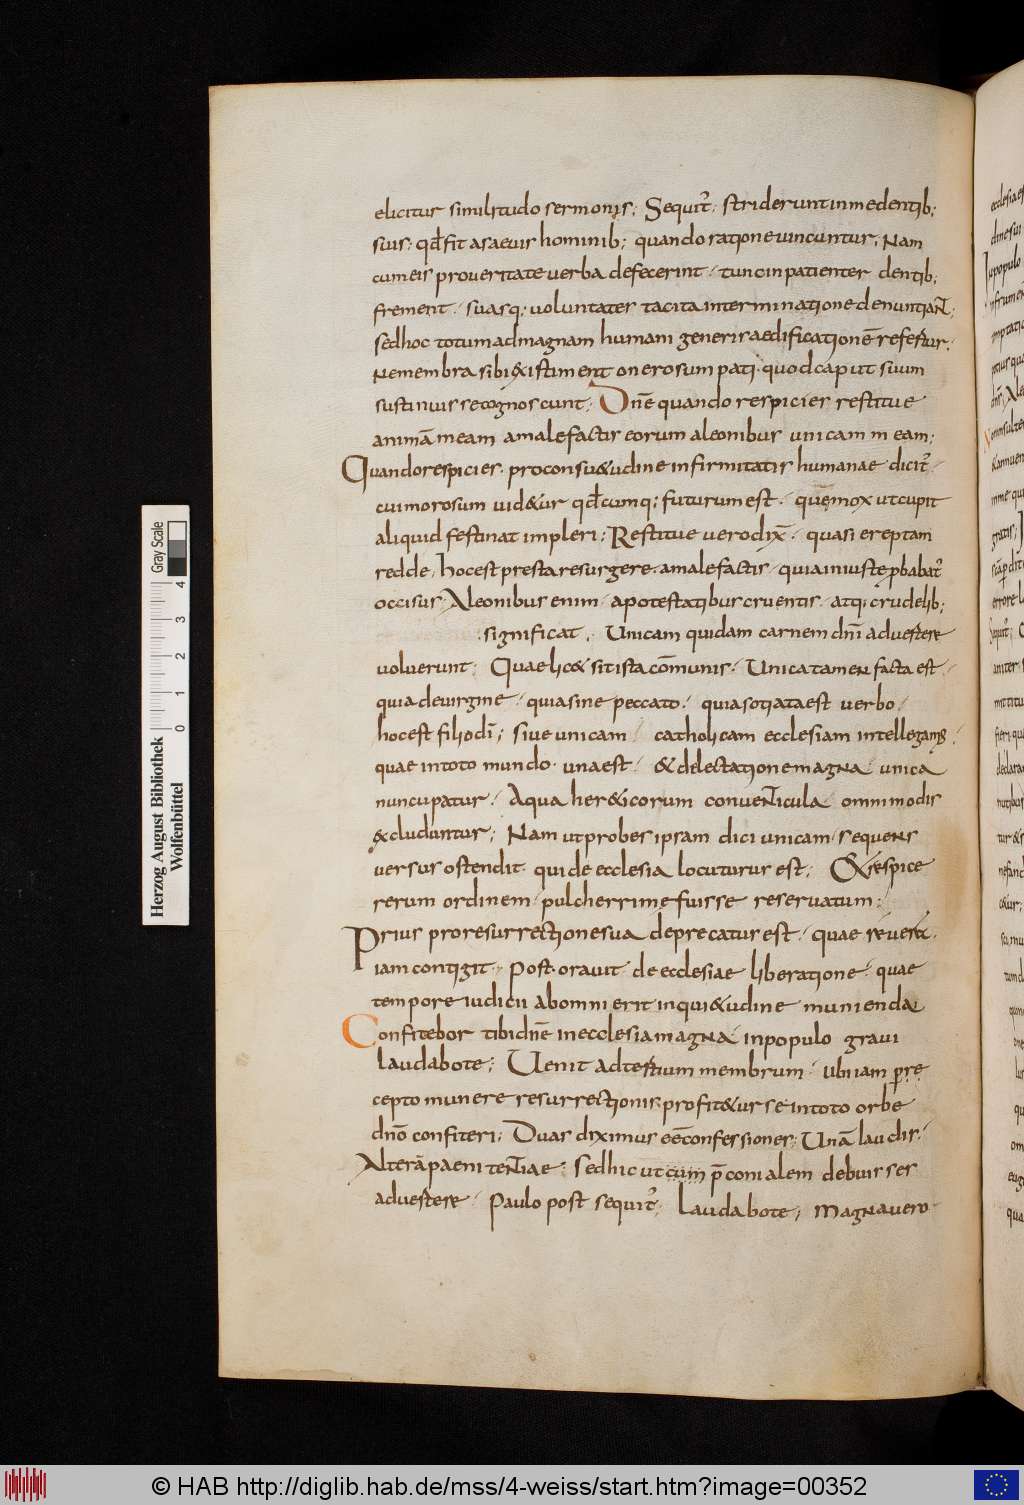 elicitur similitudo sermonis; Sequit᷑; striderunt in me dentib;
suis; qđ fit a saevis hominib; quando ratione vincuntur; Nam
cum eis pro veritate verba defecerint · tunc inpatienter dentib;
frement · suasq; voluntates tacita interminatione denuntiaNt;
sed hoc totum ad magnam humani generis aedificationē refertur;
Ne membra sibi existiment onerosum pati · quod caput suum
sustinuisse cognoscunt; Dn̄e quando respicies restitue
animā meam a malefactis eorum a leonibus unicam meam;
Quando respicies · pro consu&udine infirmitatis humanae dicit᷑ ·
cui morosum uid&ur qđcumq; futurum est · quē mox ut cupit
aliquid festinat impleri; Restitue vero dix̄ · quasi ereptam
redde · hoc est presta resurgere · a malefactis · quia iniuste ꝓbabat᷑
occisus; A leonibus enim · a potestatibus cruentis · atq; crudelib;
significat ; Unicam quidam carnem dn̄i advertere
voluerunt; Quae lic& sit ista cōmunis · Unica tamen facta est ·
quia de virgine · quia sine peccato · quia sotiata est verbo ·
hoc est filio dī; sive unicam · catholicam ecclesiam intellegam; ·
quae in toto mundo · una est · & delectatione magna unica
nuncupatur · A qua her&icorum conventicula omnimodis
excluduntur; Nam ut probes ipsam dici unicam · sequens
versus ostendit · qui de ecclesia locuturus est; & respice
rerum ordinem · pulcherrime fuisse reservatum;
Prius pro resurrectione sua deprecatur est · quae revera ·
iam contigit · Post oravit de ecclesiae liberatione · quae
tempore iudicii ab omni erit inqui&udine munienda
Confitebor tibi dn̄e in ecclesia magna in populo gravi
laudabo te; Uenit ad tertium membrum · ubi iam per re
cepto munere resurrectionis profit&ur se in toto orbe
dn̄o confiteri; Duas diximus eē confessiones; Unā laudis ·
Alterā paenitentiae; sed hic ut cum p̄conialem debuisses
advertere · Paulo post sequit᷑; laudabo te; magna vero
© HAB http://diglib.hab.de/mss/4-weiss/start.htm?image=00352
Herzog August Bibliothek
Wolfenbüttel
0 1 2 3 4
Gray Scale